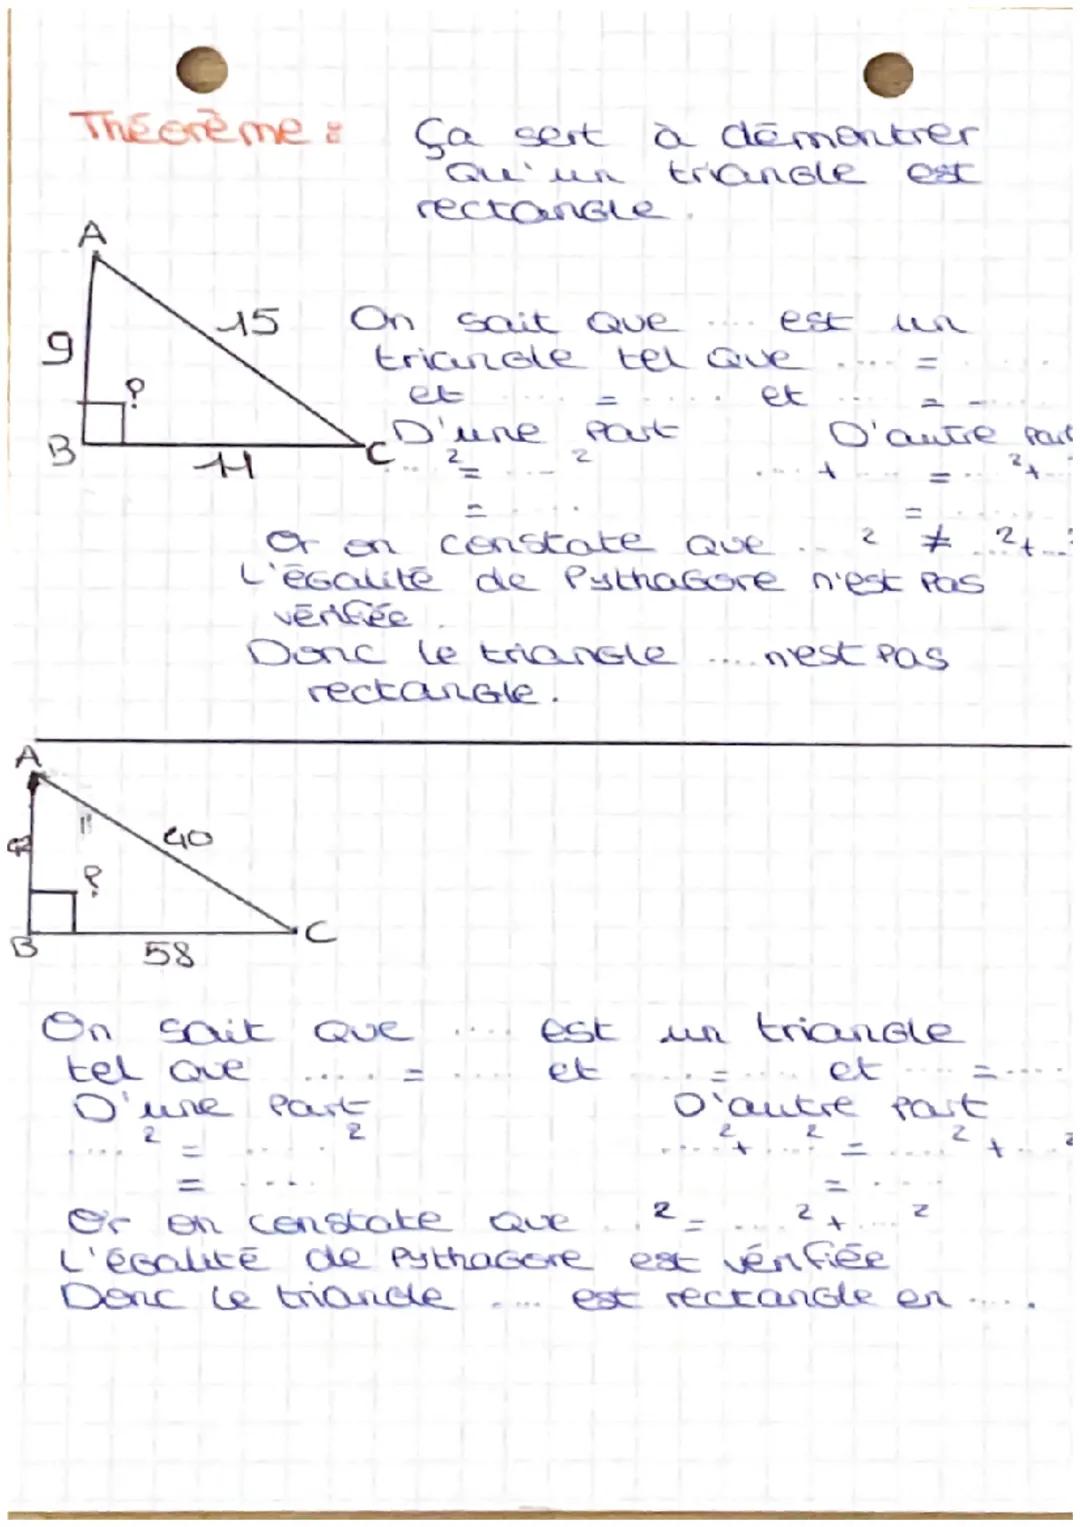 Théorème : Ça sert à démontrer
qu'un triangle est
rectangle.
A
9
15
?
B
11
C
On sait que .... est un
triangle tel que .... = ....
et .... = .... et .... = ....
D'une part D'autre part
....² = ....² .... + .... = ....² + ....
= .... = ....
Or on constate que ....² ≠ ....² + ....²
L'égalité de Pythagore n'est pas
vérifiée.
Donc le triangle .... n'est pas
rectangle.
A
40
?
B
58
C
On sait que .... est un triangle
tel que .... = .... et .... = .... et .... = ....
D'une part D'autre part
....² = ....² ....² + ....² = ....² + ....²
= .... = ....
Or on constate que ....² = ....² + ....²
L'égalité de Pythagore est vérifiée
Donc le triangle .... est rectangle en ....